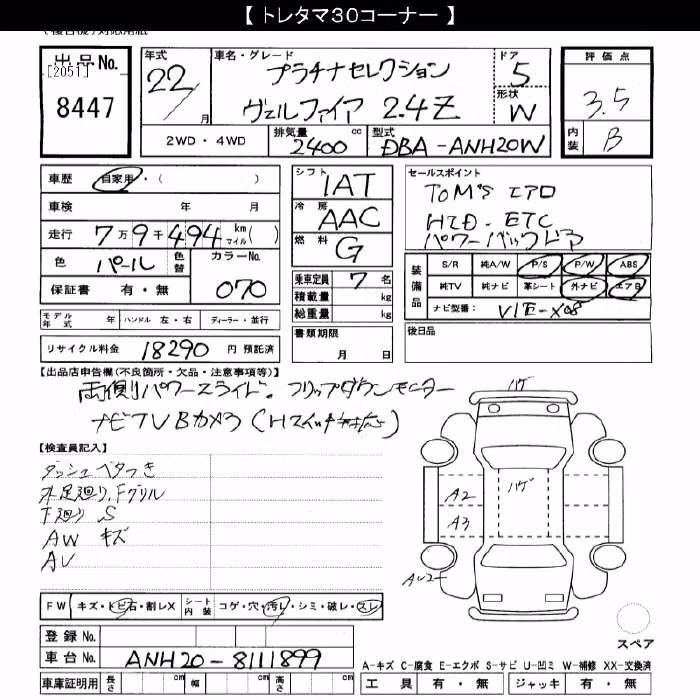 【 トレタマ30コーナー 】
出品No. [2051] 8447
年式 22/ 月
車名・グレード プラチナセレクション ヴェルファイア 2.4Z
ドア 5
形状 W
評価点 3.5
内装 B
2WD・4WD
排気量 2400 cc
型式 DBA-ANH20W
車歴 自家用・( )
車検 年 月
走行 7万9千494 km マイル( )
色 パール 色替 カラーNo. 070
保証書 有・無
シフト IAT
冷房 AAC
燃料 G
乗車定員 7 名
積載量 kg
総重量 kg
書類期限 月 日
セールスポイント
TOM'S エアロ
HID. ETC
パワーバックドア
装備品
S/R 純A/W P/S P/W ABS
純TV 純ナビ 革シート 外ナビ エアB
ナビ型番:
後日品
モデル年式 年 ハンドル 左・右 ディーラー・並行
リサイクル料金 18290 円 預託済
【出品店申告欄(不良箇所・欠品・注意事項等)】
両側パワースライド. フリップダウンモニター
ナビTV Bカメラ
【検査員記入】
ダッシュベタつき
外足廻り、Fグリル
下廻り S
AW キズ
AU
ハゲ
ハゲ
A2
A3
AU2
FW キズ・トビ石・割レX シート内装 コゲ・穴・汚レ・シミ・破レ・スレ
登録No.
車台No. ANH20-8111899
車庫証明用 長さ cm 幅 cm 高さ cm
スペア
A-キズ C-腐食 E-エクボ S-サビ U-凹ミ W-補修 XX-交換済
工具 有・無 ジャッキ 有・無